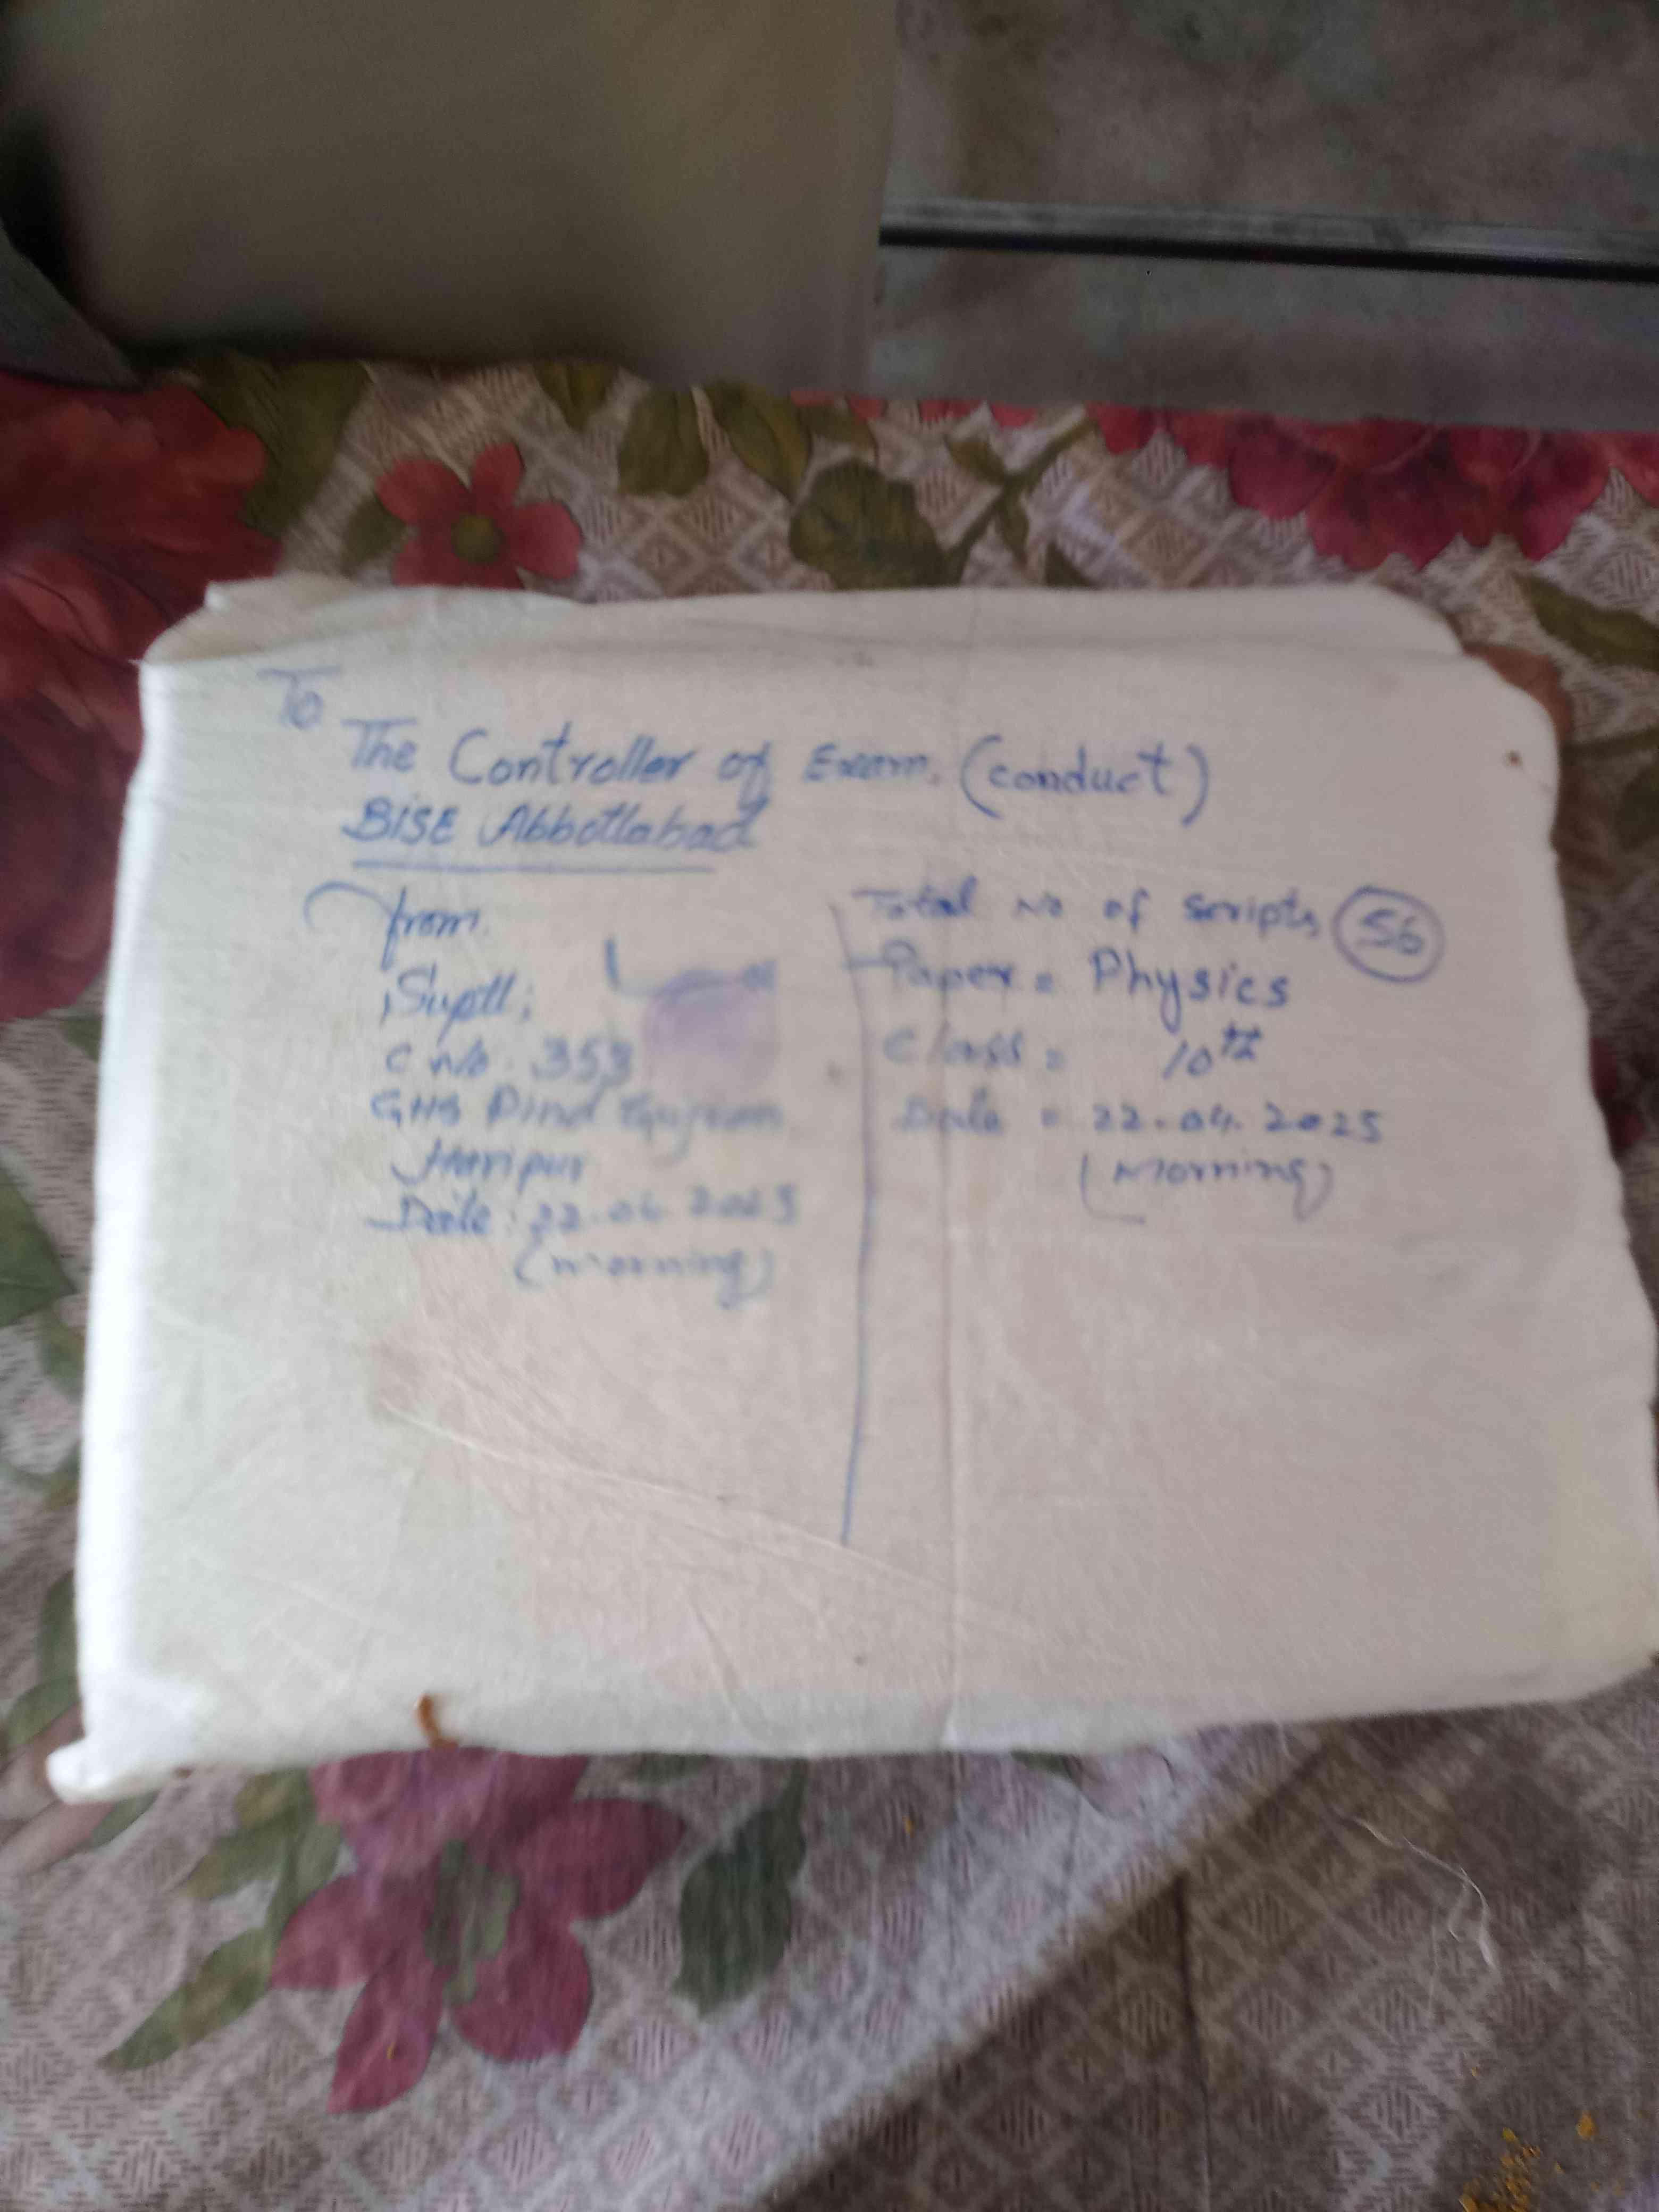 To
The Controller of Exam. (conduct)
BISE Abbottabad
from.
Suptt;
C No. 353
GHS Pind Gujran
Haripur
Date: 22.04.2025
(Morning)
Total No of Scripts 56
Paper = Physics
Class = 10th
Date = 22.04.2025
(Morning)